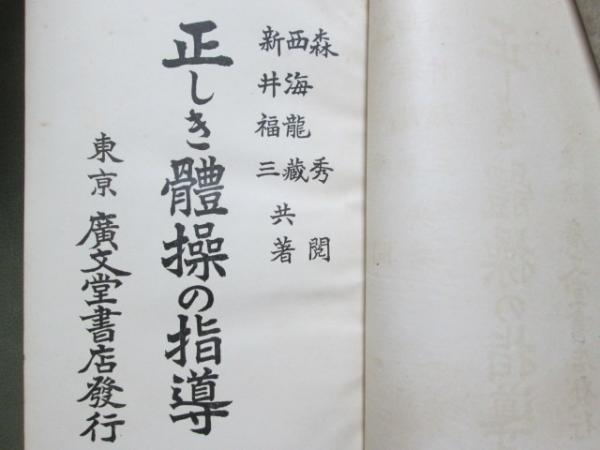 森秀閲
西海龍藏
新井福三
共著
正しき體操の指導
東京 廣文堂書店發行